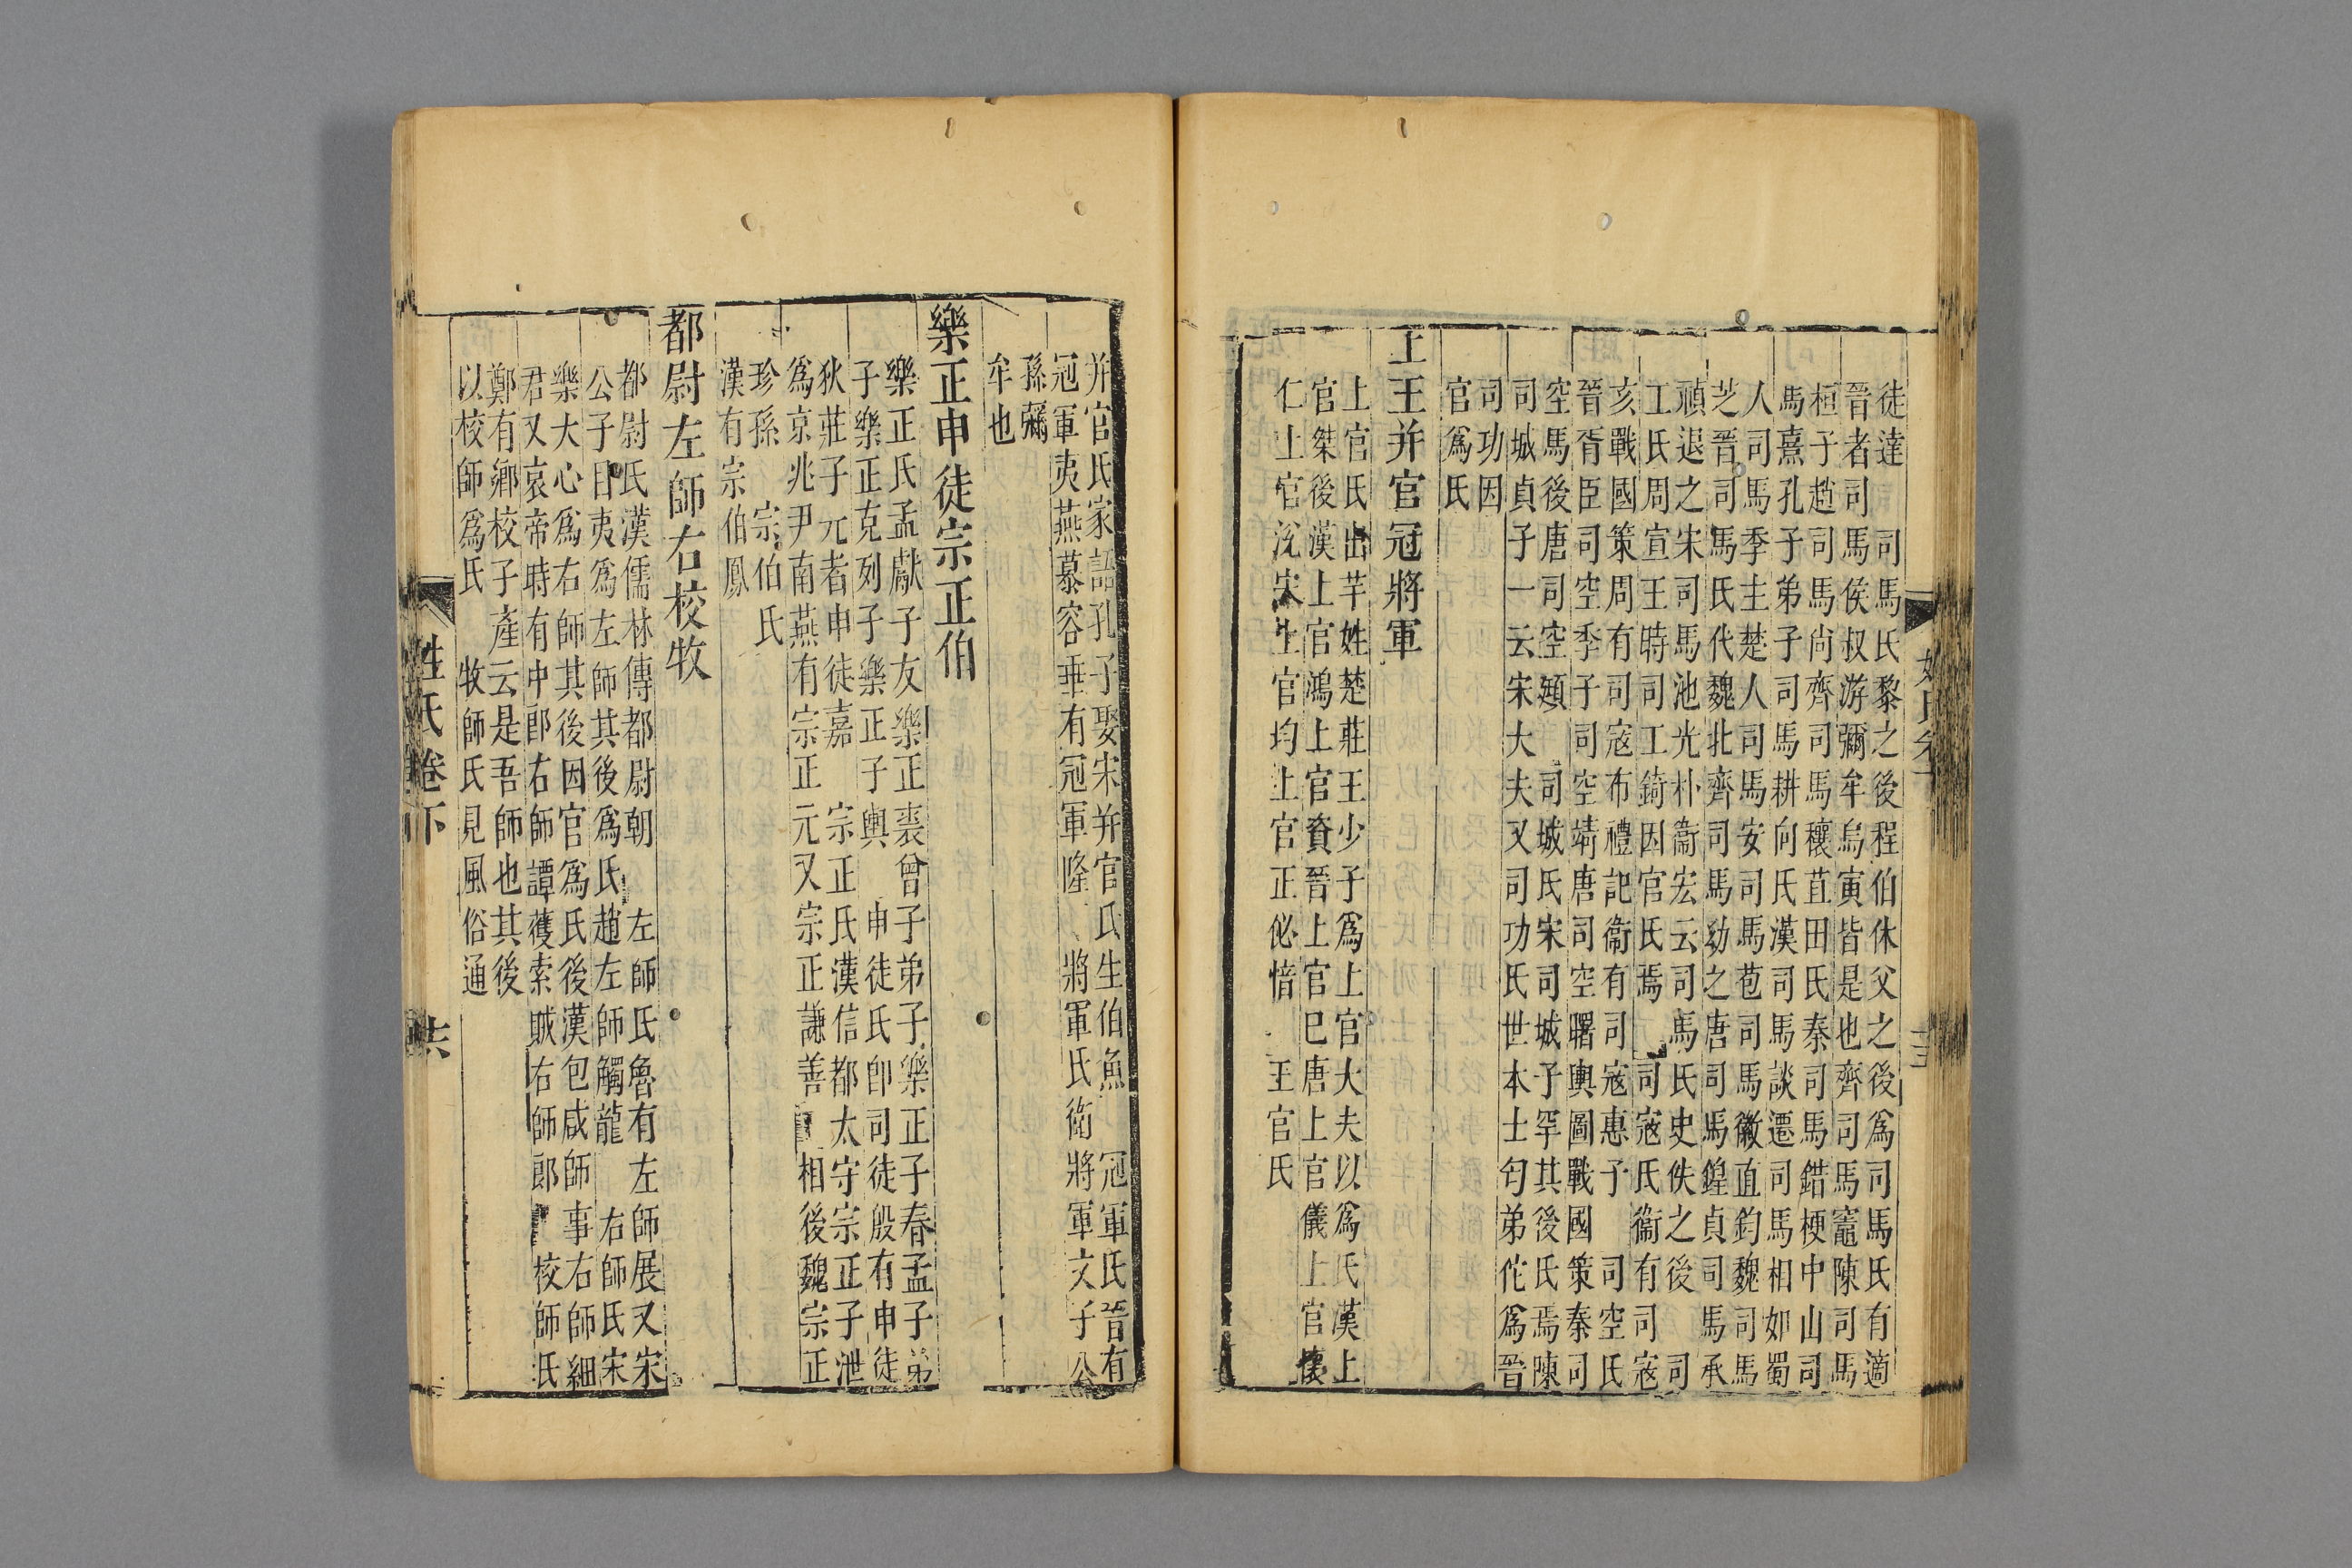 徒達　司馬氏黎之後程伯休父之後爲司馬氏有適
晉者司馬侯叔游彌牟烏寅皆是也齊司馬竈陳司馬
桓子趙司馬尚齊司馬穰苴田氏秦司馬錯梗中山司
馬熹孔子弟子司馬耕向氏漢司馬談遷司馬相如蜀
人司馬季主楚人司馬安司馬苞司馬徽直鈞魏司馬
芝晉司馬氏代魏北齊司馬幼之唐司馬鍠貞司馬承
禎退之宋司馬池光朴衞宏云司馬氏史佚之後　司
工氏周宣王時司工錡因官氏焉　司寇氏衞有司寇
亥戰國策周有司寇布禮記衞有司寇惠子　司空氏
晉胥臣司空季子司空靖唐司空曙輿圖戰國策秦司
空馬後唐司空頲　司城氏宋司城子罕其後氏焉陳
司城貞子一云宋大夫又司功氏世本士匄弟佗爲晉
司功因
官爲氏
上王并官冠將軍
上官氏出芊姓楚莊王少子爲上官大夫以爲氏漢上
官桀後漢上官鴻上官資晉上官巳唐上官儀上官懐
仁上官沇宋上官均上官正佖愔　王官氏
并官氏家語孔子娶宋并官氏生伯魚　冠軍氏晉有
冠軍夷燕慕容垂有冠軍隆　將軍氏衞將軍文子公
孫彌
牟也
樂正申徒宗正伯
樂正氏孟獻子友樂正裘曾子弟子樂正子春孟子弟
子樂正克列子樂正子輿　申徒氏卽司徒殷有申徒
狄莊子元者申徒嘉　宗正氏漢信都太守宗正子泄
爲京兆尹南燕有宗正元又宗正謙善　相後魏宗正
珍孫　宗伯氏
漢有宗伯鳳
都尉左師右校牧
都尉氏漢儒林傳都尉朝　左師氏魯有左師展又宋
公子目夷爲左師其後爲氏趙左師觸龍　右師氏宋
樂大心爲右師其後因官爲氏後漢包咸師事右師細
君又哀帝時有中郎右師譚蒦索賊右師郎　校師氏
鄭有鄉校子產云是吾師也其後
以校師爲氏　牧師氏見風俗通
姓氏卷下
共